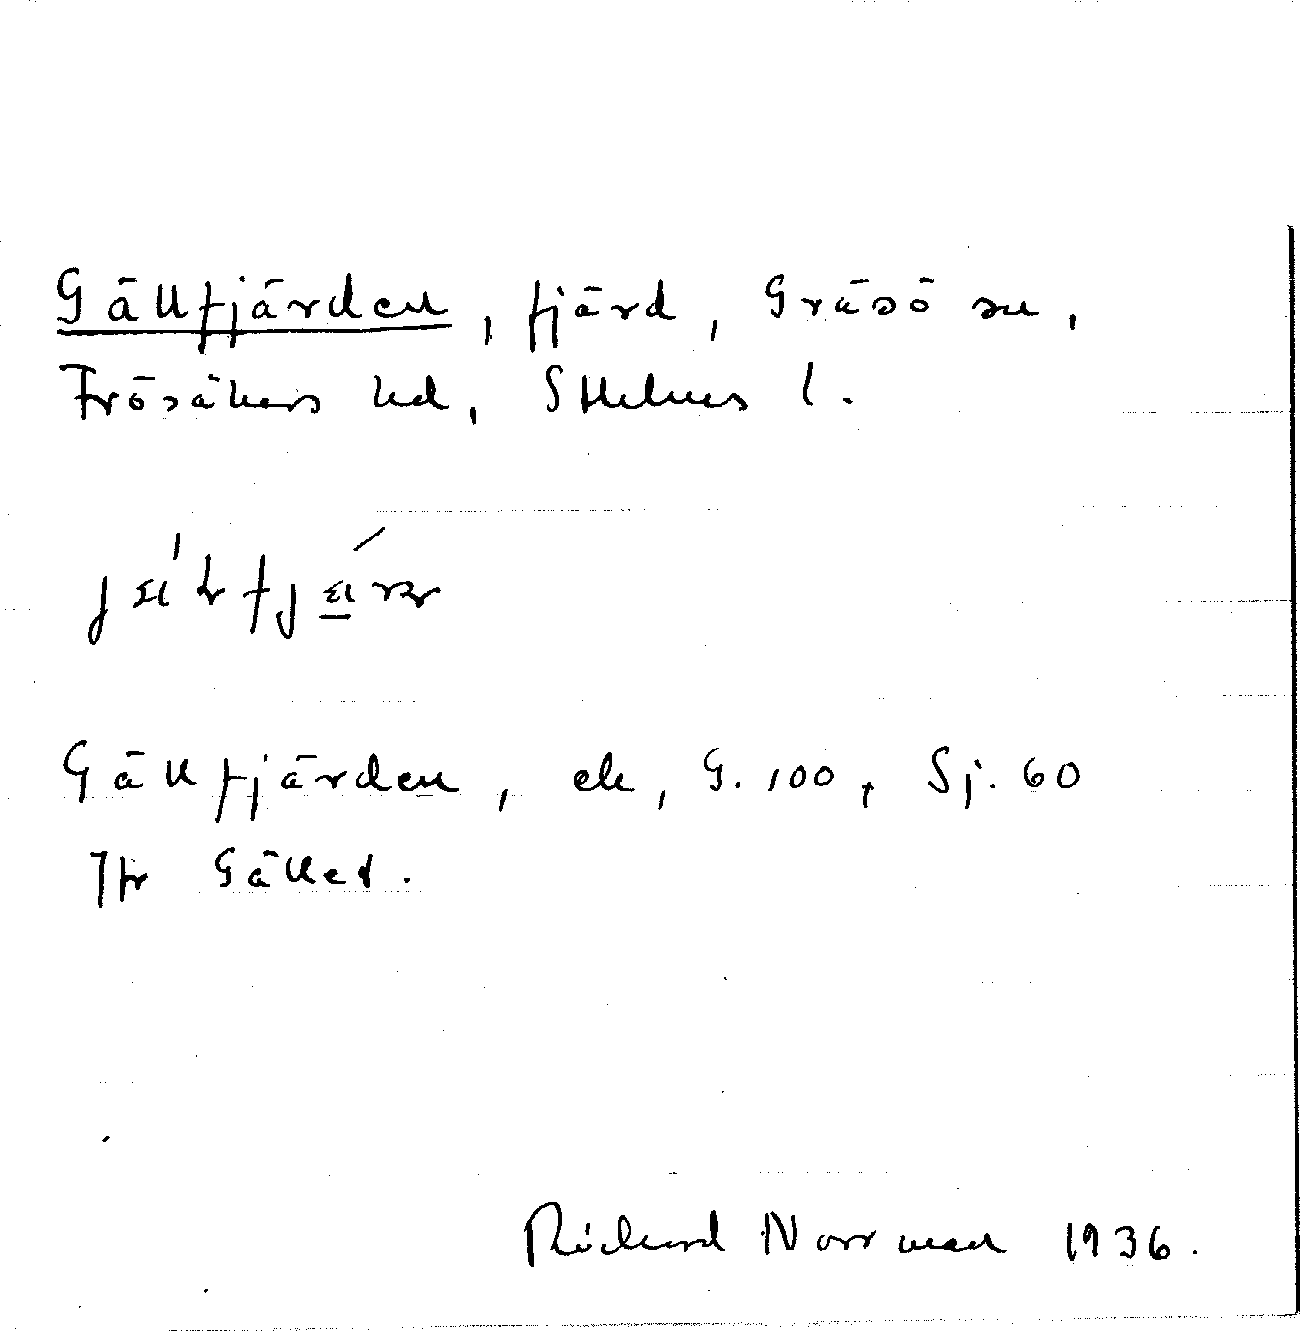 Gällfjärden, fjärd, Gräsö sn,
Frösåkers hd, Sthlms l.
Gällfjärden, ek, G. 100, Sj. 60
Jfr Gället.
Richard Norrman 1936.